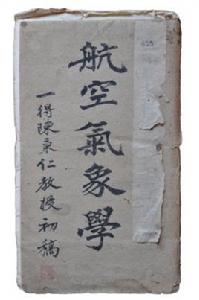 航空氣象學
一得陳秉仁教授初稿